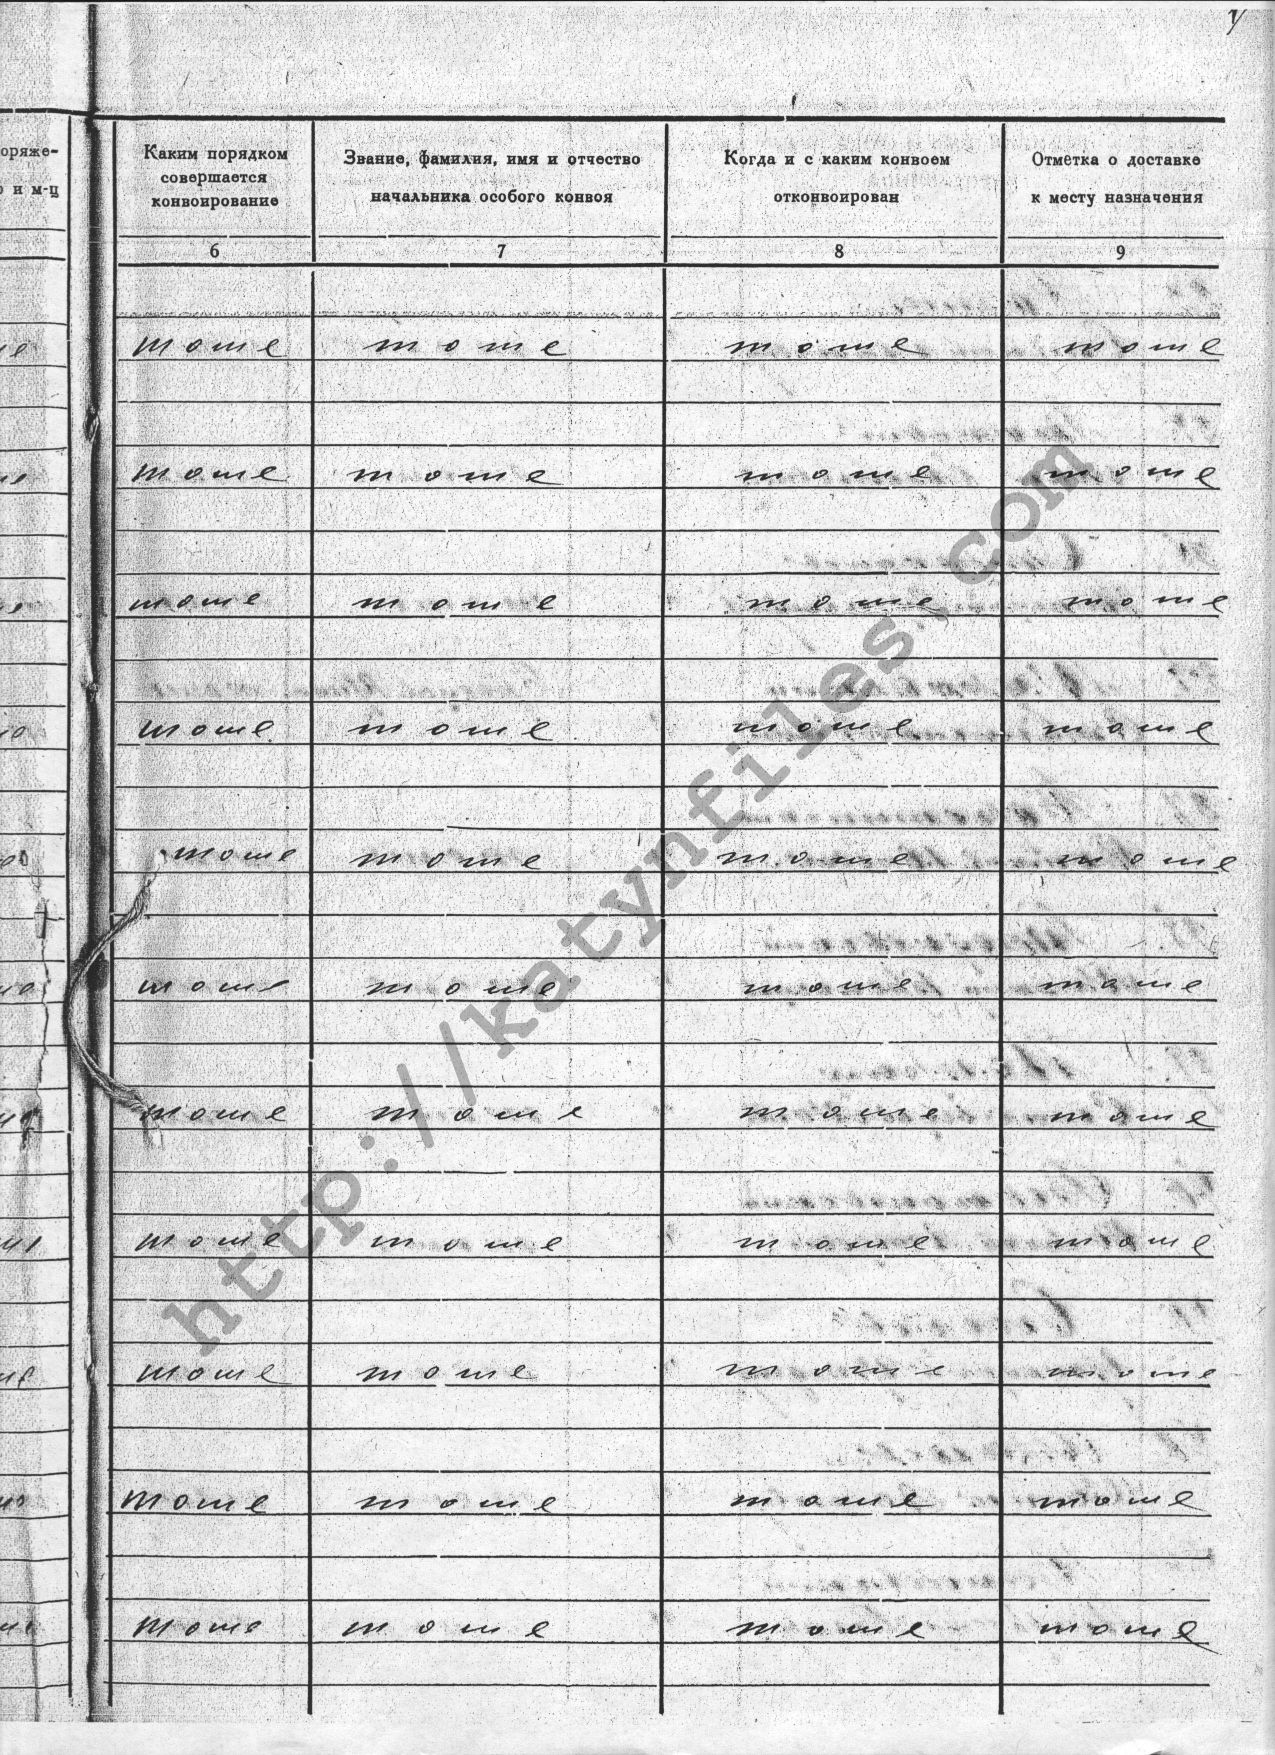 оряже-
Каким порядком
совершается
конвоирование
Звание, фамилия, имя и отчество
начальника особого конвоя
Когда и с каким конвоем
отконвоирован
Отметка о доставке
к месту назначения
и м-ц
6 7 8 9
тоже тоже тоже тоже
тоже тоже тоже тоже
тоже тоже тоже тоже
тоже тоже тоже тоже
тоже тоже тоже тоже
тоже тоже тоже тоже
тоже тоже тоже тоже
тоже тоже тоже тоже
тоже тоже тоже тоже
тоже тоже тоже тоже
тоже тоже тоже тоже
http://katynfiles.com